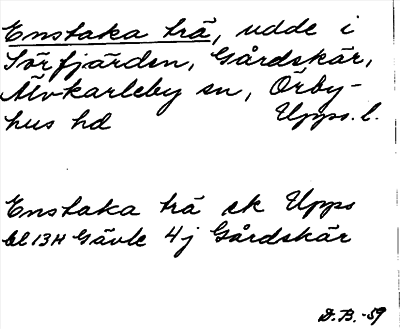 Enstaka trä, udde i
Sörfjärden, Gårdskär,
Älvkarleby sn, Örby-
hus hd Upps. l.
Enstaka trä ek Upps
bl 13H Gävle 4j Gårdskär
D.B.-59